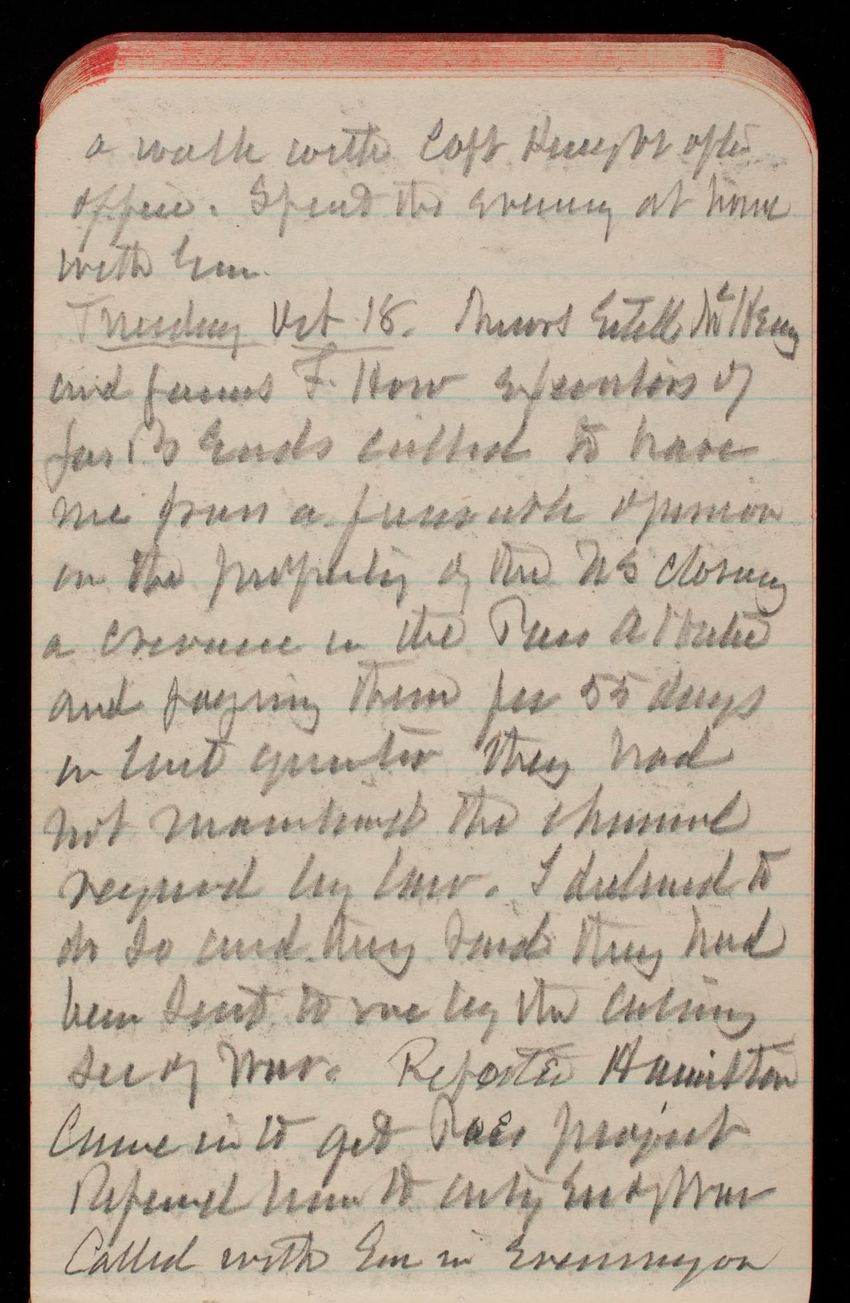 a walk with Capt Knight after
office. Spent the evening at home
with Em.
Tuesday Oct 18. Messrs Estell McHenry
and James F. How executors of
Jas B Eads called to have
me from a favorable opinion
on the propriety of the US closing
a crevasse in the Pass A l'Outre
and paying them for 55 days
in last quarter they had
not maintained the channel
required by law. I declined to
do so and they said they had
been sent to me by the acting
Sec of War. Reporter Hamilton
Came in to get Pass project
Referred him to actg Sec of War
Called with Em in Evening on